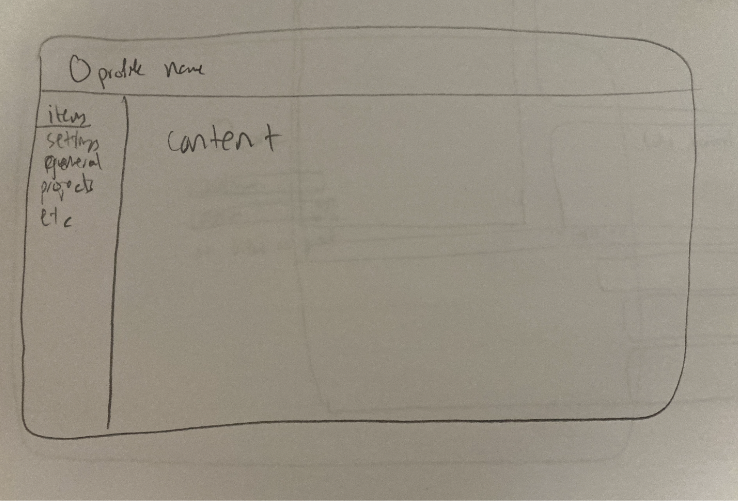 profile name
items
settings
general
projects
etc
content